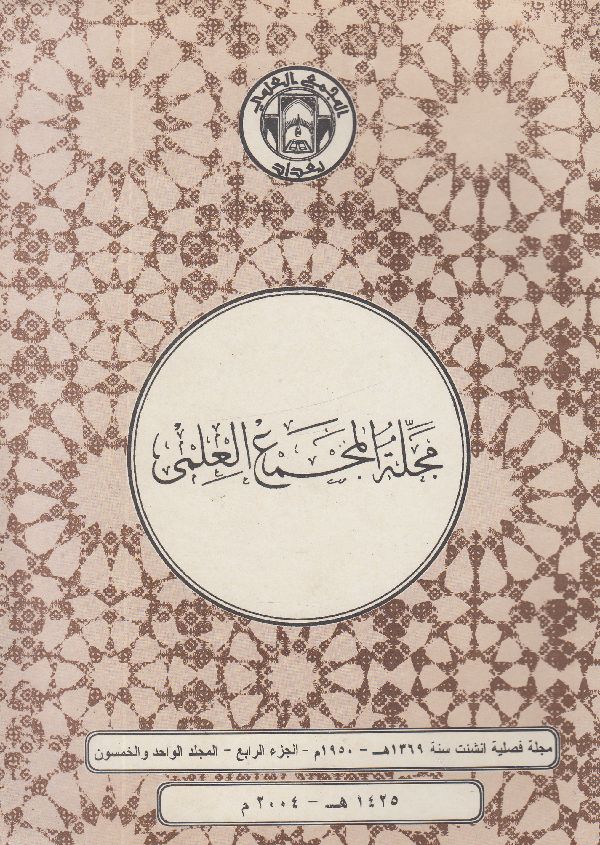 المجمع العلمي
بغداد
مجلة المجمع العلمي
مجلة فصلية انشئت سنة ١٣٦٩هـ - ١٩٥٠م - الجزء الرابع - المجلد الواحد والخمسون
١٤٢٥ هـ - ٢٠٠٤ م